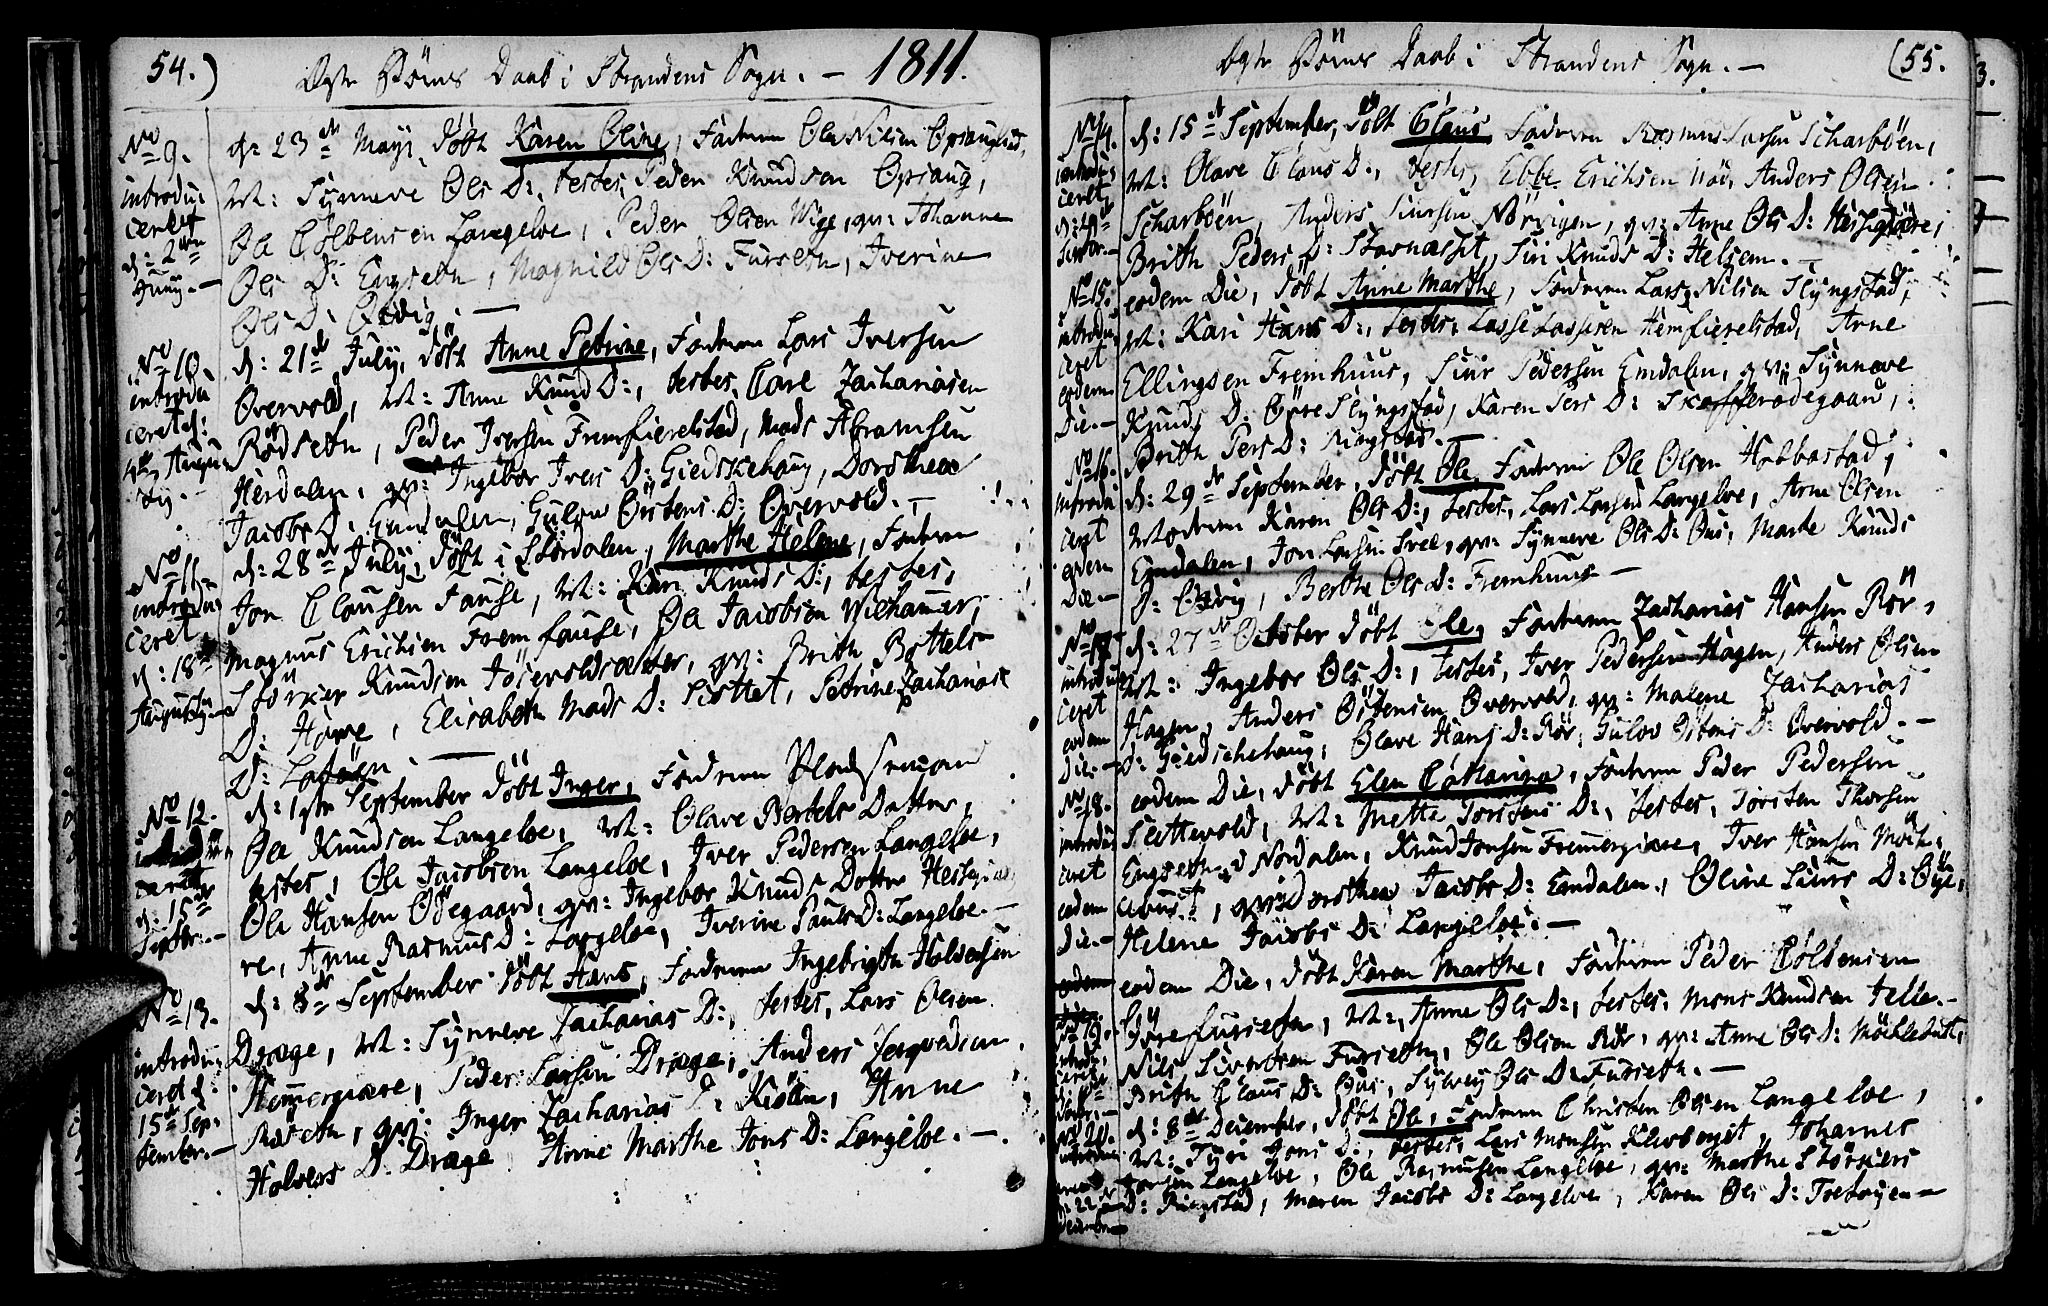 54.)
Ægte Börns Daab i Strandens Sogn. — 1811.
No 9.
introdu:
ceret
d: 2den
Juny. —
d: 23de Mayi, döbt Karen Oline, Faderen Ole Nilsen Opsanglied,
M: Synneve Ols D:, testes, Peder Knudsen Opsaug,
Ole Colbensen Langeloe, Peder Olsen Wige, qv: Johanne
Ols D: Engseth, Magnild Ols D: Furseth, Iverine
Ols D: Ødvig. —
No 10.
introdu
ceret d:
Augu
sty. —
d: 21de July, döbt Anne Petrine, Faderen Lars Iversen
Overvold, M: Anne Knud D:, testes, Care Zachariasen
Rödseth, Peder Iversen Fremfierelstad, Mads Abramsen
Herdalen, qv: Ingebor Ivers D: Giedskehaug, Dorothea
Jacobs D: Emdalen, Gulou Östens D: Overvold. —
No 11.
introdu
ceret
d: 18de
Augusty —
d: 28de July, döbt i Stordalen, Marthe Helene, Faderen
Jon Clausen Fause, M: Kari Knuds D:, testes,
Magnus Erichsen Fremfause, Ole Jacobsen Wiehammer,
Störker Knudsen Josevoldsæter, qv: Brith Bottels
D: Hove, Elisabeth Mads D: Slottet, Petrine Zacharias
D: Löföen. —
No 12.
ceret
d: 15de
Septbr. —
d: 1ste September döbt Inger, Faderen Pladsmand
Ole Knudsen Langeloe, M: Olave Bertels Datter,
testes, Ole Jacobsen Langeloe, Iver Pedersen Langeloe,
Ole Hansen Ödegaard, qv: Ingebor Knuds Datter Hessegiæ
re, Anne Rasmus D: Langeloe, Iverine Pauls D: Langeloe. —
No 13.
introdu:
ceret d:
15de Sep:
tember. —
d: 8de September döbt Hans, Faderen Ingebrigth Holversen
Drage, M: Synneve Zacharias D:, testes, Lars Olsen
Hemmergiære, Peder Larsen Drage, Anders
Rödseth, qv: Inger Zacharias D: Kiölen, Anne
Holvers D: Drage, Anne Marthe Jons D: Langeloe. —
Ægte Börns Daab i Strandens Sogn. — (55.
No 14.
introdu
ceret
d: 15de September, döbt Claus, Faderen Rasmus Larsen Scharböen,
M: Olave Claus D:, testes, Ebbe Erichsen Nöd, Anders Olsen
Scharböen, Anders Sivrsen Nörvigen, qv: Anne Ols D: Hessegiære,
Brith Peders D: Stavnæsset, Siri Knuds D: Helsem. —
No 15.
introdu
ceret
eodem
Die. —
eodem Die, döbt Anne Marthe, Faderen Lars Nilsen Slyngstad,
M: Kari Hans D:, testes, Lasse Lassesen Hemfierelstad, Arne
Ellingsen Fremhuus, Siur Pedersen Emdalen, qv: Synneve
Knuds D: Övre Slyngstad, Karen Pers D: Skafferødegaard,
Brith Pers D: Ringstad. —
No 16.
introdu
ceret
eodem
Die. —
d: 29de September, döbt Ole, Faderen Ole Olsen Habbastad,
Moderen Karen Ols D:, testes, Lars Larsen Langeloe, Arne Olsen
Emdalen, Jon Larsen Svee, qv: Synneve Ols D: Huus, Marte Knuds
D: Ødvig, Berthe Ols D: Fremhuus —
No 17
introdu
ceret
eodem
Die. —
d: 27de October döbt Ole, Faderen Zacharias Hansen Rör,
M: Ingebor Ols D:, testes, Iver Pedersen Hagen, Anders Olsen
Hagen, Anders Östensen Overvold, qv: Malene Zacharias
D: Giedschehaug, Olave Hans D: Rör, Gulov Östens D: Overvold. —
No 18.
introdu
ceret
eodem
Die. —
eodem Die, döbt Elen Catharina, Faderen Peder Pedersen
Slettevold, M: Mette Torstens D:, testes, Torsten Thorsen
Engseth, Nordalen, Knud Jonsen Fremergiære, Iver Hansen Möch:
lebust, qv: Dorothea Jacobs D: Emdalen, Oline Siurs D: Öye,
Helene Jacobs D: Langeloe. —
eodem
No 19.
eodem Die, döbt Karen Marthe, Faderen Peder Colbensen
Övrefurseth, M:, Anne Ols D:, testes, Mons Knudsen Telle. —
Nils Sivertsen Furseth, Ole Olsen Rör, qv: Anne Ols D: Möchlebust,
Brith Claus D: Huus, Sylvey Ols D: Furseth. —
No 20.
introdu
22
d: 8de December, döbt Ole, Faderen Christen Olsen Langeloe,
M: Siri Jons D:, testes, Lars Monsen Klevberget, Johannes
Jonsen Langeloe, Ole Rasmusen Langeloe, qv: Marthe Störkiers
D: Ringstad, Maren Jacobs D: Langeloe, Karen Ols D: Tvetöyen —